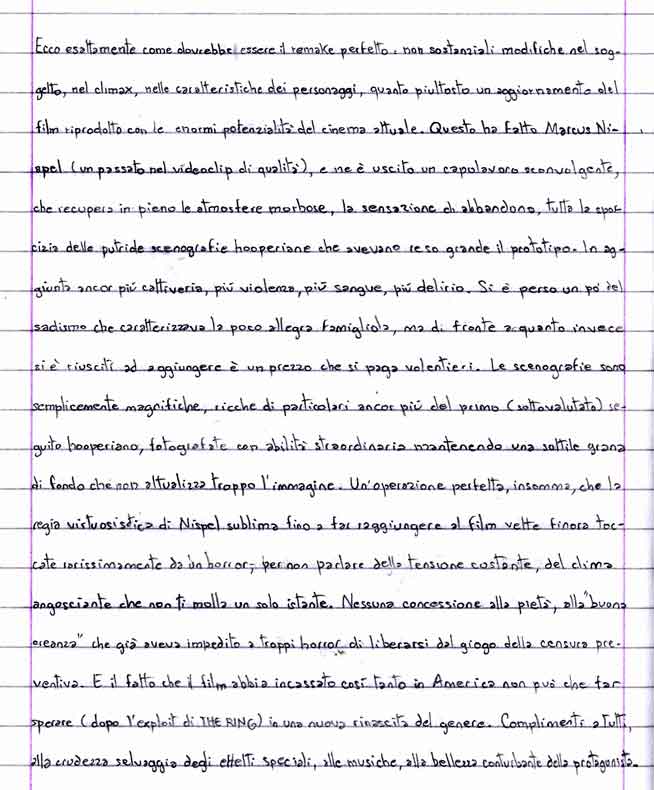 Ecco esattamente come dovrebbe essere il remake perfetto: non sostanziali modifiche nel sog-
getto, nel climax, nelle caratteristiche dei personaggi, quanto piuttosto un aggiornamento del
film riprodotto con le enormi potenzialità del cinema attuale. Questo ha fatto Marcus Ni-
spel (un passato nel videoclip di qualità), e ne è uscito un capolavoro sconvolgente,
che recupera in pieno le atmosfere morbose, la sensazione di abbandono, tutta la spor-
cizia delle putride scenografie hooperiane che avevano reso grande il prototipo. In ag-
giunta ancor più cattiveria, più violenza, più sangue, più delirio. Si è perso un po' del
sadismo che caratterizzava la poco allegra famigliola, ma di fronte a quanto invece
si è riusciti ad aggiungere è un prezzo che si paga volentieri. Le scenografie sono
semplicemente magnifiche, ricche di particolari ancor più del primo (sottovalutato) se-
guito hooperiano, fotografate con abilità straordinaria mantenendo una sottile grana
di fondo che non attualizza troppo l'immagine. Un'operazione perfetta, insomma, che la
regia virtuosistica di Nispel sublima fino a far raggiungere al film vette finora toc-
cate rarissimamente da un horror; per non parlare della tensione costante, del clima
angosciante che non ti molla un solo istante. Nessuna concessione alla pietà, alla "buona
creanza" che già aveva impedito a troppi horror di liberarsi dal giogo della censura pre-
ventiva. E il fatto che il film abbia incassato così tanto in America non può che far
sperare (dopo l'exploit di THE RING) in una nuova rinascita del genere. Complimenti a tutti,
alla crudezza selvaggia degli effetti speciali, alle musiche, alla bellezza conturbante della protagonista.